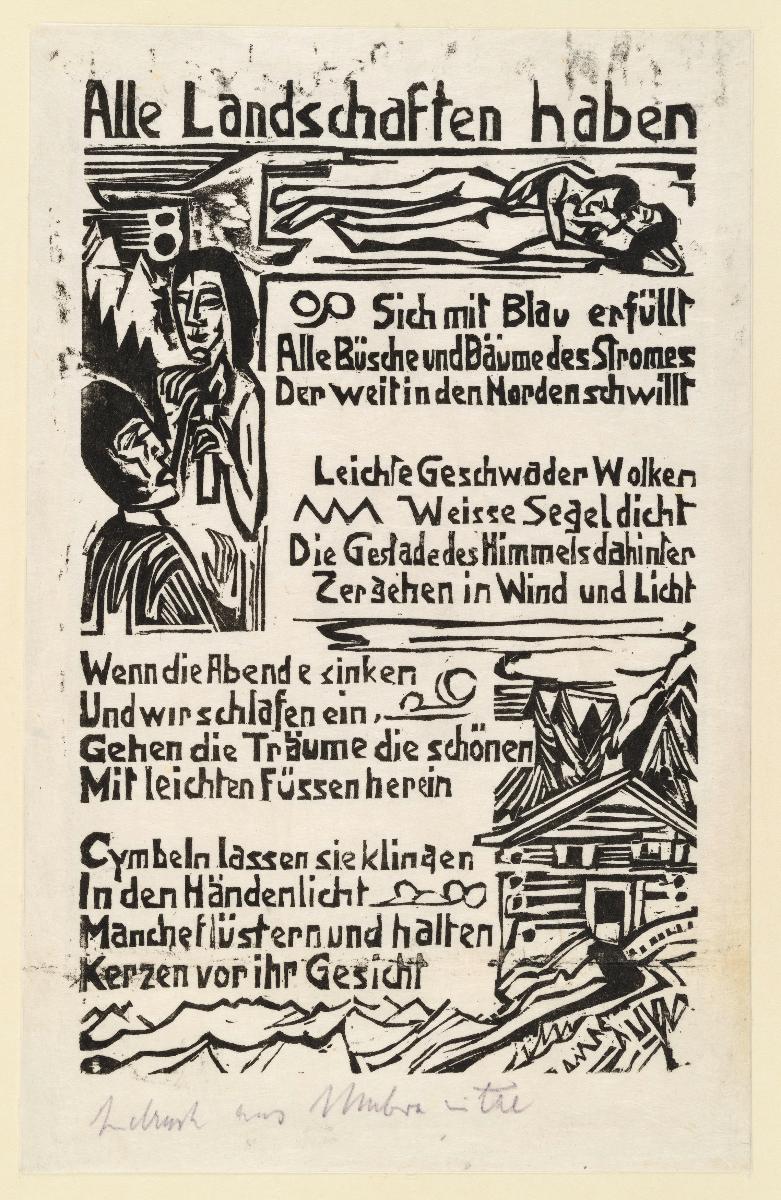 Alle Landschaften haben
Sich mit Blau erfüllt
Alle Büsche und Bäume des Stromes
Der weit in den Norden schwillt
Leichte Geschwader Wolken
Weisse Segel dicht
Die Gestade des Himmels dahinter
Zergehen in Wind und Licht
Wenn die Abende sinken
Und wir schlafen ein,
Gehen die Träume die schönen
Mit leichten Füssen herein
Cymbeln lassen sie klingen
In den Händen licht
Manche flüstern und halten
Kerzen vor ihr Gesicht
aus Umbra vitae